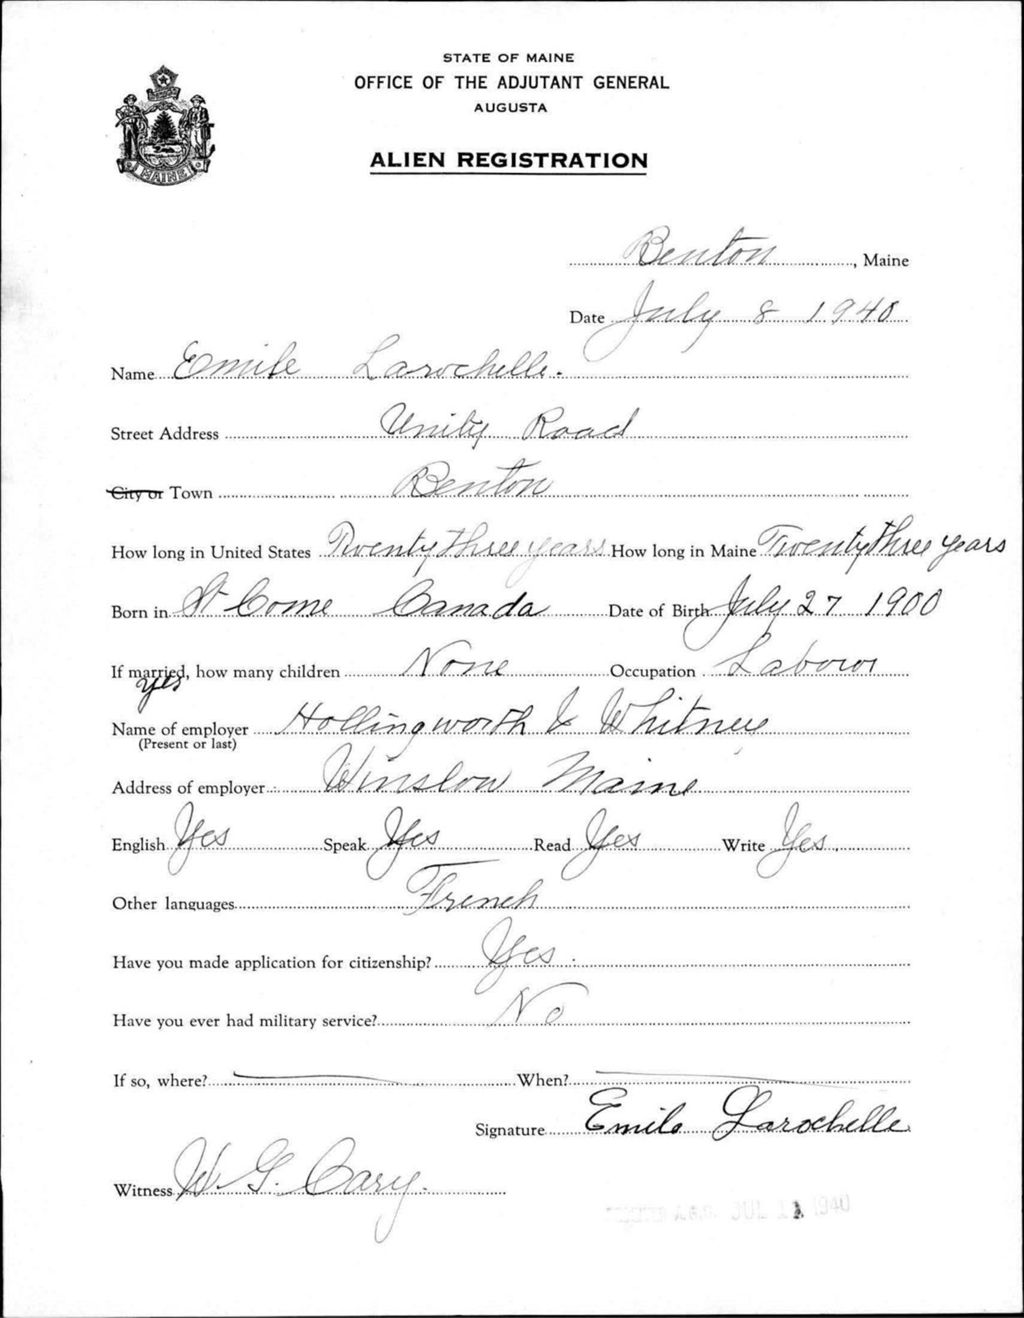 STATE OF MAINE
OFFICE OF THE ADJUTANT GENERAL
AUGUSTA
MAINE
ALIEN REGISTRATION
Benton, Maine
Date July 8 1940
Name Emile Larochelle.
Street Address Unity Road
City or Town Benton
How long in United States Twenty three years How long in Maine Twenty three years
Born in St Come Canada Date of Birth July 27 1900
If married, how many children None Occupation Labour
yes
Name of employer Hollingworth & Whitney
(Present or last)
Address of employer Winslow Maine
English Yes Speak Yes Read Yes Write Yes.
Other languages French
Have you made application for citizenship? Yes.
Have you ever had military service? No
If so, where? When?
Signature Emile Larochelle
Witness W. G. Cary.
A.G.O. JUL 1940